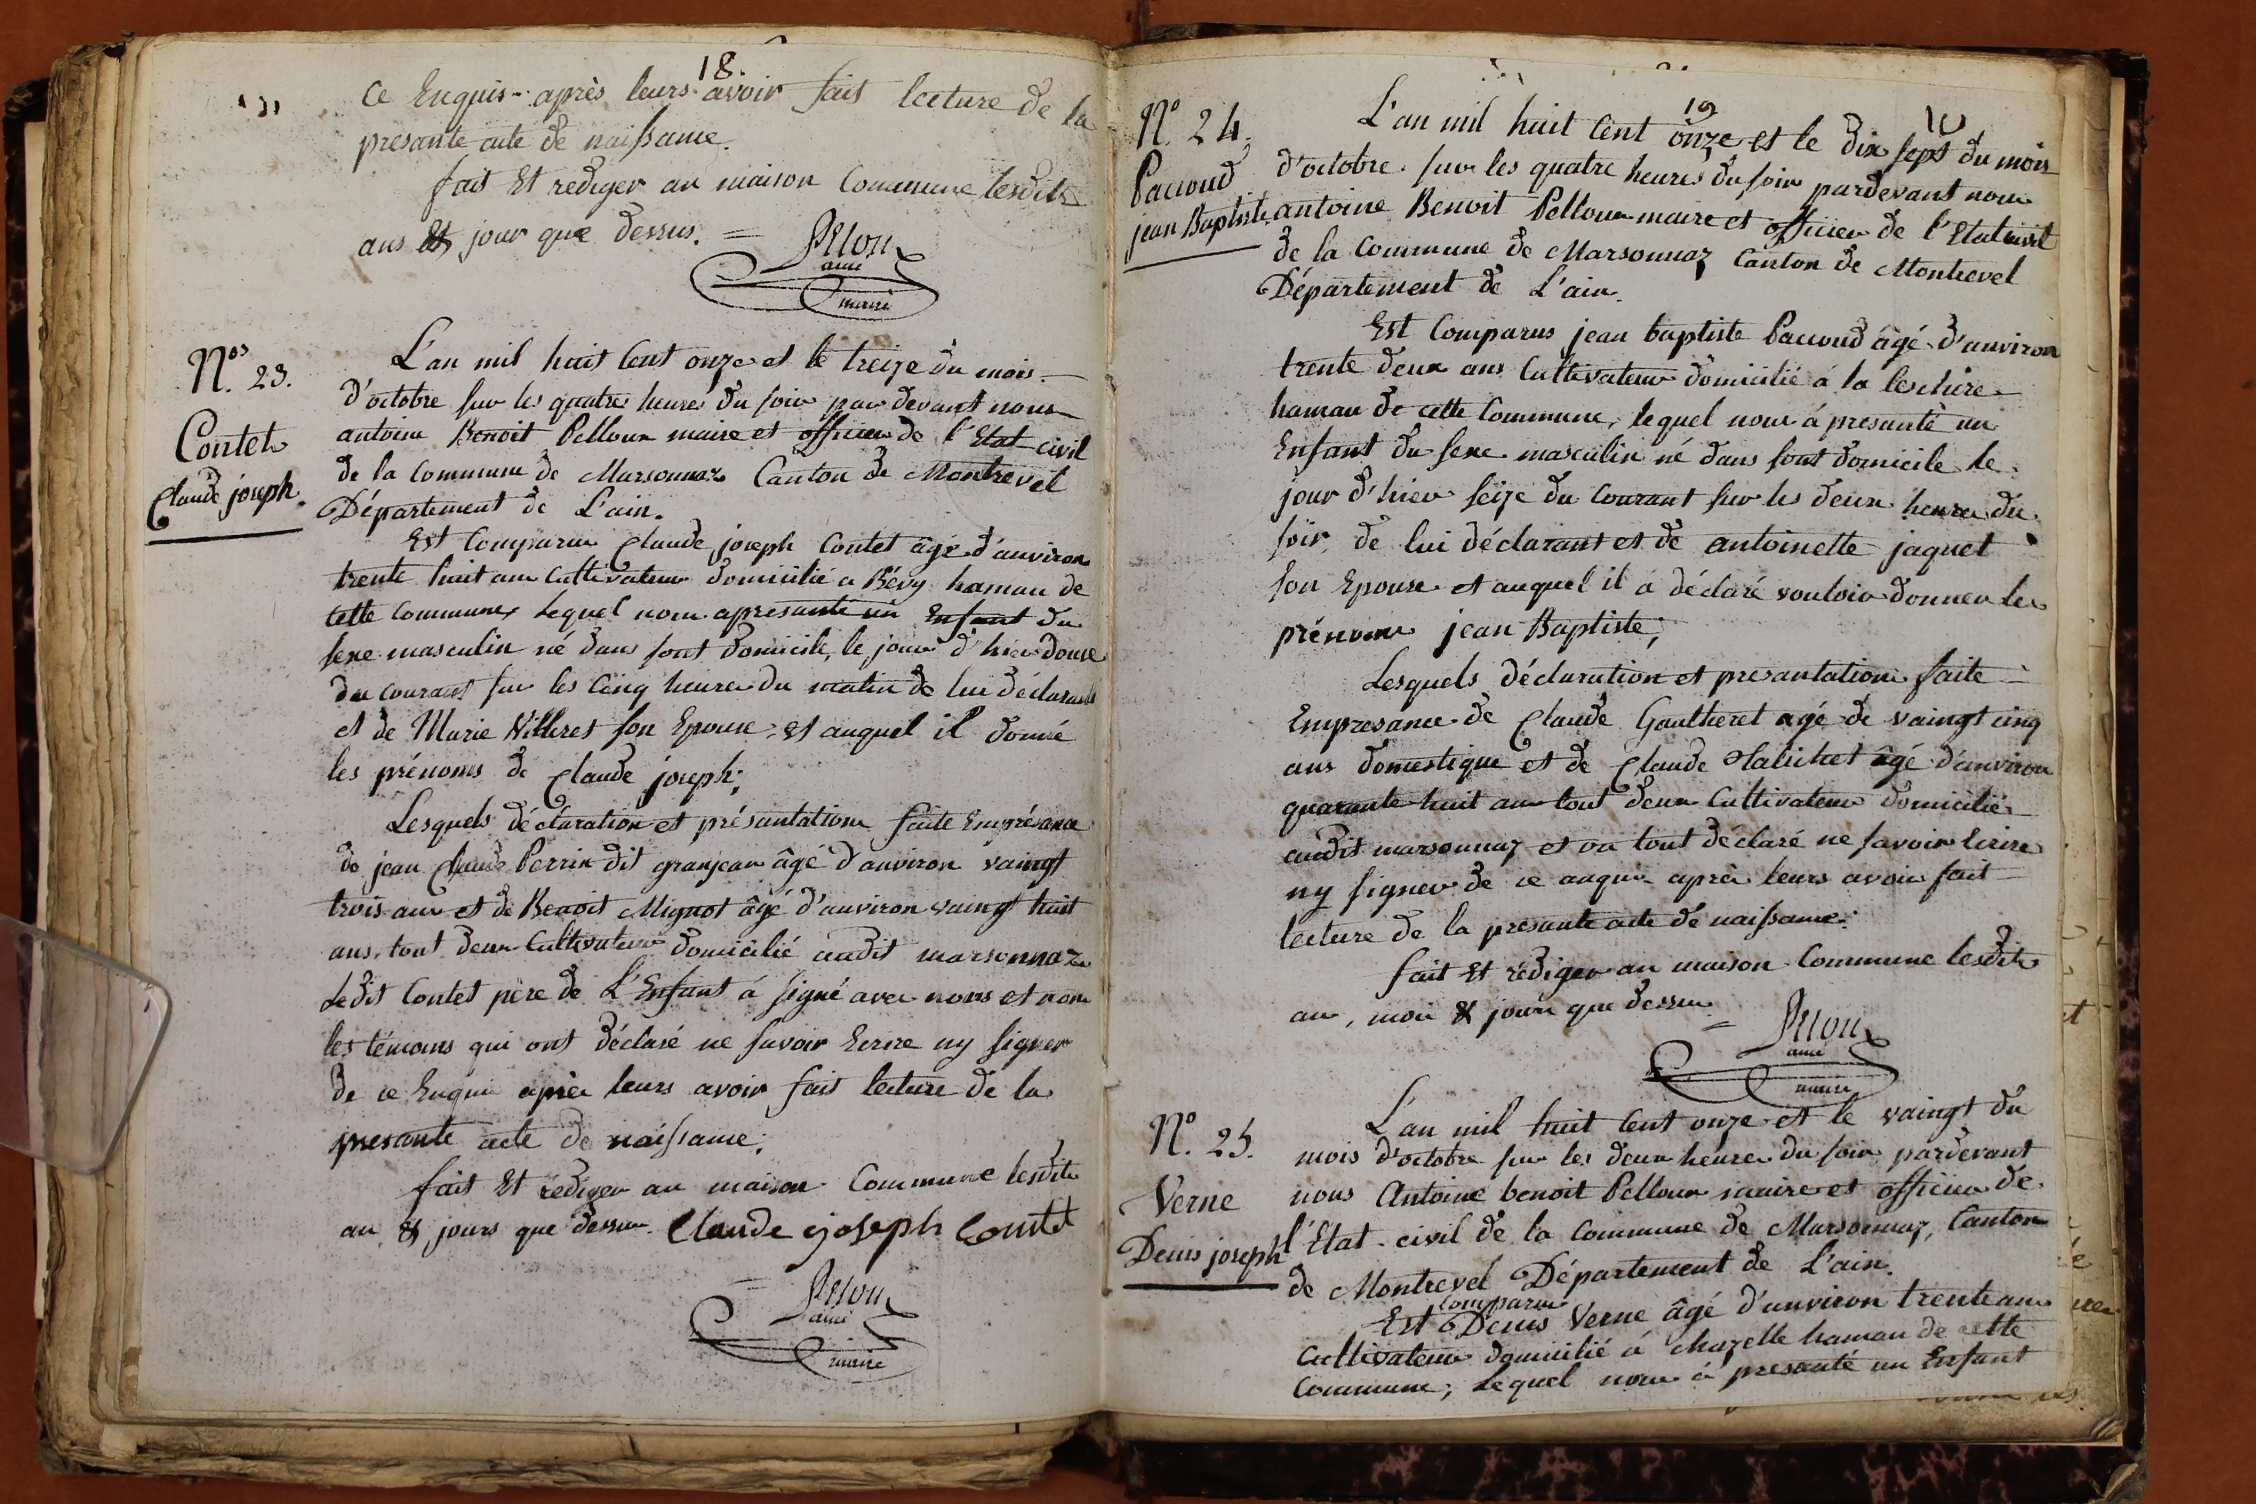 18.
Ce Enquis après leurs avoir fait lecture de la
presante acte de naissance.
fait Et rediger au maison Commune lesdits
ans & jour que dessus. =
maire
Nos 23.
Contet
Claude joseph.
L'an mil huit Cent onze et le treize du mois
d'octobre sur les quatre heures du soir par devant nous
antoine Benoit Pelloux maire et officier de l'Etat civil
de la Commune de Marsonnaz Canton de Montrevel
Département de L'ain.
Est Comparue Claude joseph Contet âgé d'anviron
trente huit ans Cultivateur domicilié a Bévy hamau de
cette Commune, Lequel nous apresanté un Enfant du
sexe masculin né dans sont domicile, le jour d'hier douze
du courant sur les Cinq heures du matin de lui déclarant
et de Marie Villeret son Epouse, et auquel il donné
les prénoms de Claude joseph;
Lesquels déclaration et présantation faite Emprésance
de jean Claude Perrin dit granjean âgé d'anviron vaingt
trois ans et de Benoit Mignot âgé d'anviron vaingt huit
ans, tout deux Cultivateur domicilié audit marsonnaz
Ledit Contet père de L'Enfant á signé avec nous et non
les témoins qui ont déclaré ne savoir Ecrire ny signer
de ce Enquis après leurs avoir fait lecture de la
presante acte de naissance;
fait Et rediger au maison Commune lesdits
an & jours que dessus. Claude joseph Contet
=
maire
19
N.º 24.
Paccoud
jean Baptiste
L'an mil huit Cent onze et le dix sept du mois
d'octobre sur les quatre heures du soir pardevant nous
antoine Benoit Pelloux maire et officier de l'Etat civil
de la Commune de Marsonnaz Canton de Montrevel
Département de L'ain.
Est Comparus jean baptiste Paccoud âgé d'anviron
trente deux ans Cultivateur domicilié á la leschere
hamau de cette Commune, lequel nous á presanté un
Enfant du sexe masculin né dans sont domicile le
jour d'hier seize du Courant sur les deux heures du
soir, de lui déclarant et de antoinette jaquet
son Epouse et auquel il á déclaré vouloir donner les
prénoms jean Baptiste;
Lesquels déclaration et presantation faite
Empresance de Claude Gautheret agé de vaingt cinq
ans domestique et de Claude âgé d'anviron
quarante huit ans tout deux Cultivateur domicilié
audit marsonnaz et on tout déclaré ne savoir Ecrire
ny signer de ce anquis après leurs avoir fait
lecture de la presante acte de naissance.
fait Et rediger au maison Commune lesdits
an, mois & jours que dessus
=
maire
N.º 25.
Verne
Denis joseph
L'an mil huit Cent onze et le vaingt du
mois d'octobre sur les deux heures du soir pardevant
nous Antoine benoit Pelloux maire et officier de
l'Etat civil de la Commune de Marsonnaz, Canton
de Montrevel Département de L'ain.
comparus
Est Denis Verne âgé d'anviron trente ans
Cultivateur domicilié á Chazelle hamau de cette
Commune; Lequel nous á presanté un Enfant